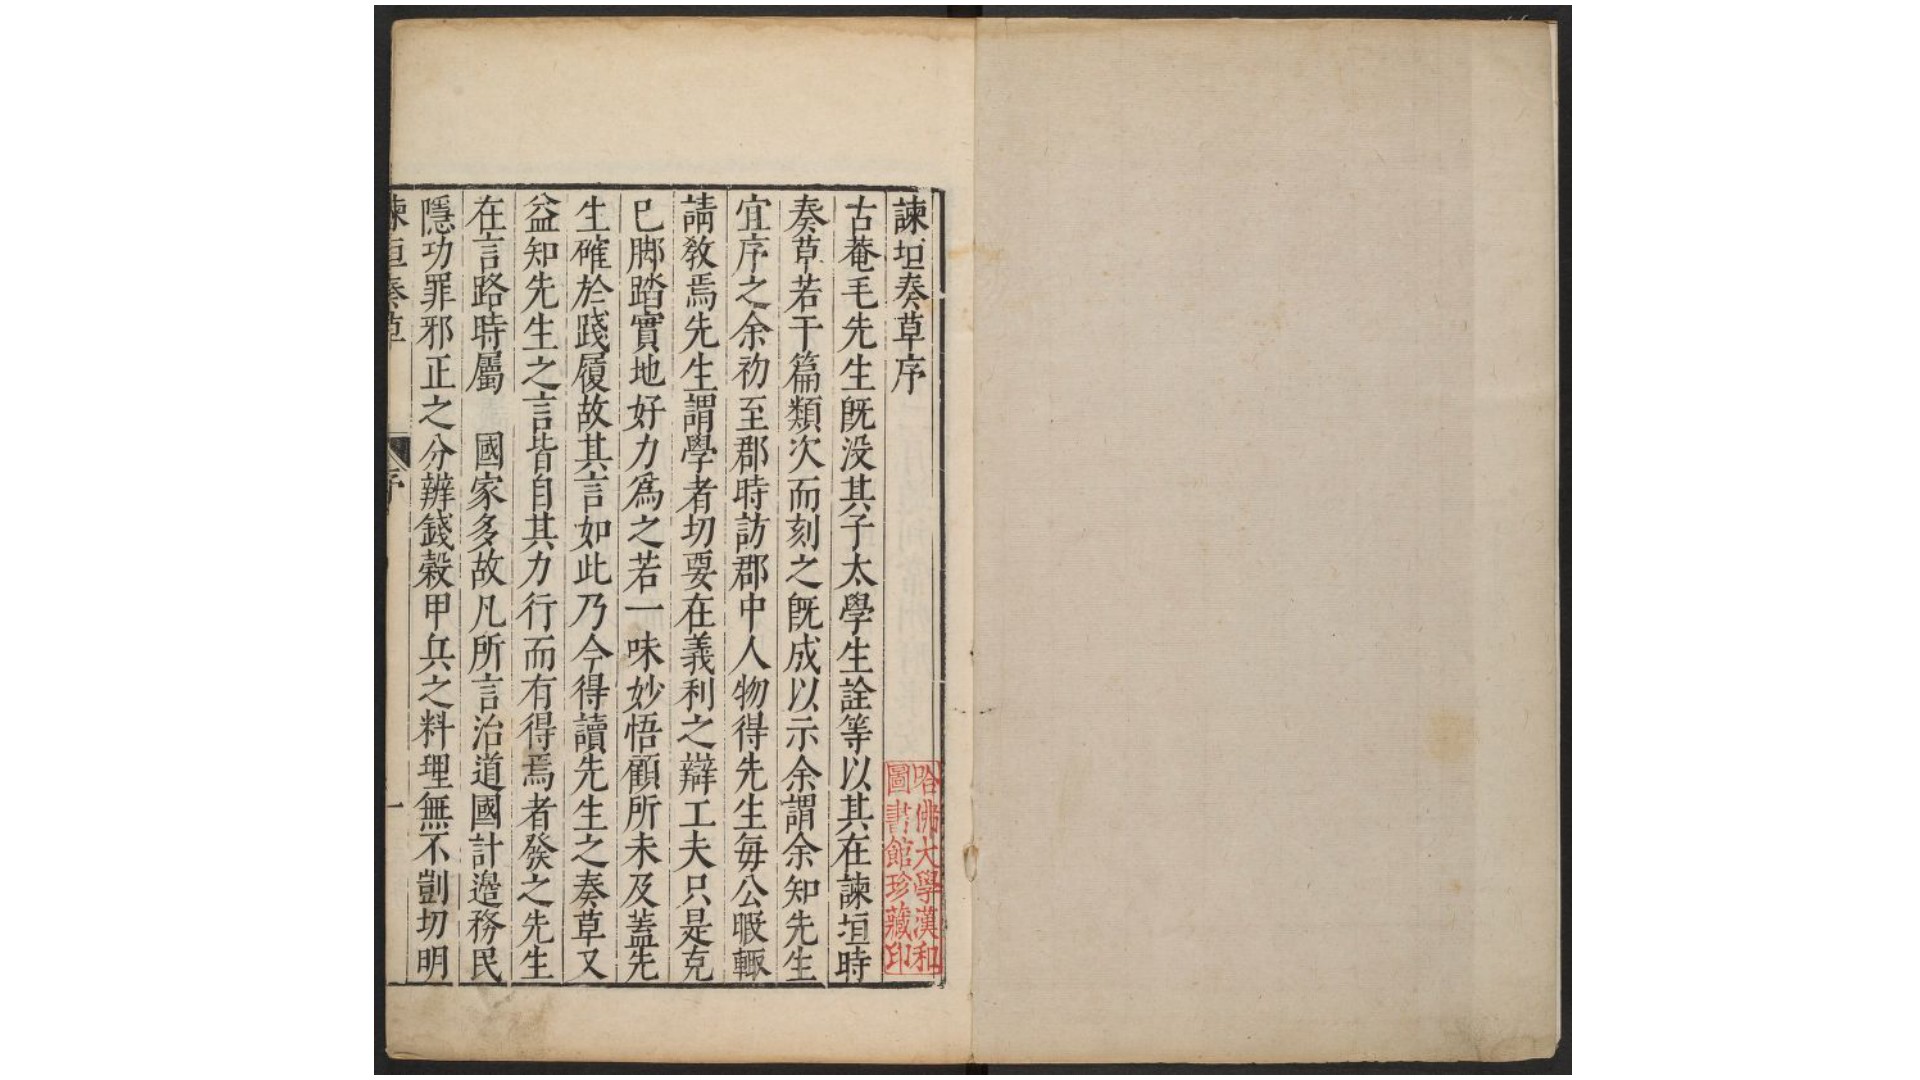 諫垣奏草序
古菴毛先生旣没其子太學生詮等以其在諫垣時
奏草若干篇類次而刻之旣成以示余謂余知先生
宜序之余初至郡時訪郡中人物得先生每公暇輙
請教焉先生謂學者切要在義利之辯工夫只是克
已脚踏實地好力爲之若一味妙悟顧所未及蓋先
生確於踐履故其言如此乃今得讀先生之奏草又
益知先生之言皆自其力行而有得焉者發之先生
在言路時屬 國家多故凡所言治道國計邉務民
隱功罪邪正之分辨錢穀甲兵之料理無不剴切明
諫垣奏草 序 一
哈佛大學漢和
圖書館珍藏印